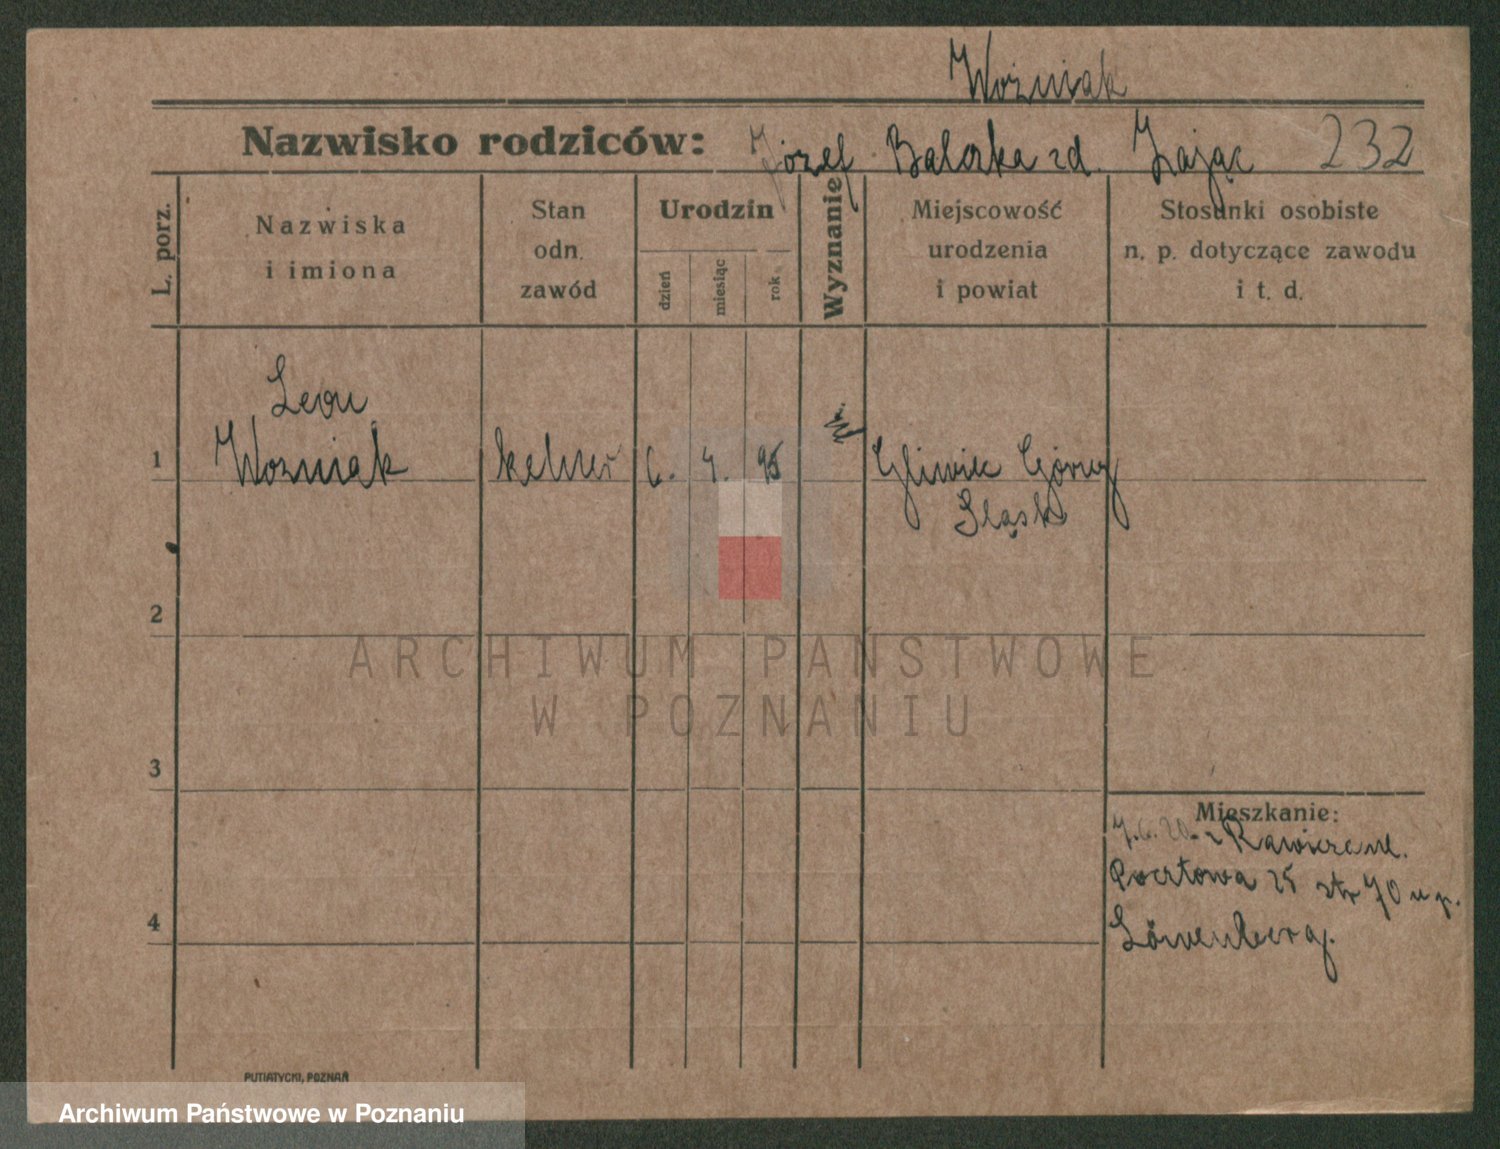 Woźniak
Nazwisko rodziców: Józef Balerka zd. Zając 232
L. porz.
Nazwiska
i imiona
Stan
odn.
zawód
Urodzin
dzień
miesiąc
rok
Wyznanie
Miejscowość
urodzenia
i powiat
Stosunki osobiste
n. p. dotyczące zawodu
i t. d.
Leon
1 Woźniak kelner 6. 4. 95 Gliwic Górny
Śląsk
2
ARCHIWUM PAŃSTWOWE
W POZNANIU
3
Mieszkanie:
7.6.20. z
Pocztowa 25 70 u p.
4 Löwenberg.
PUTIATYCKI, POZNAŃ
Archiwum Państwowe w Poznaniu